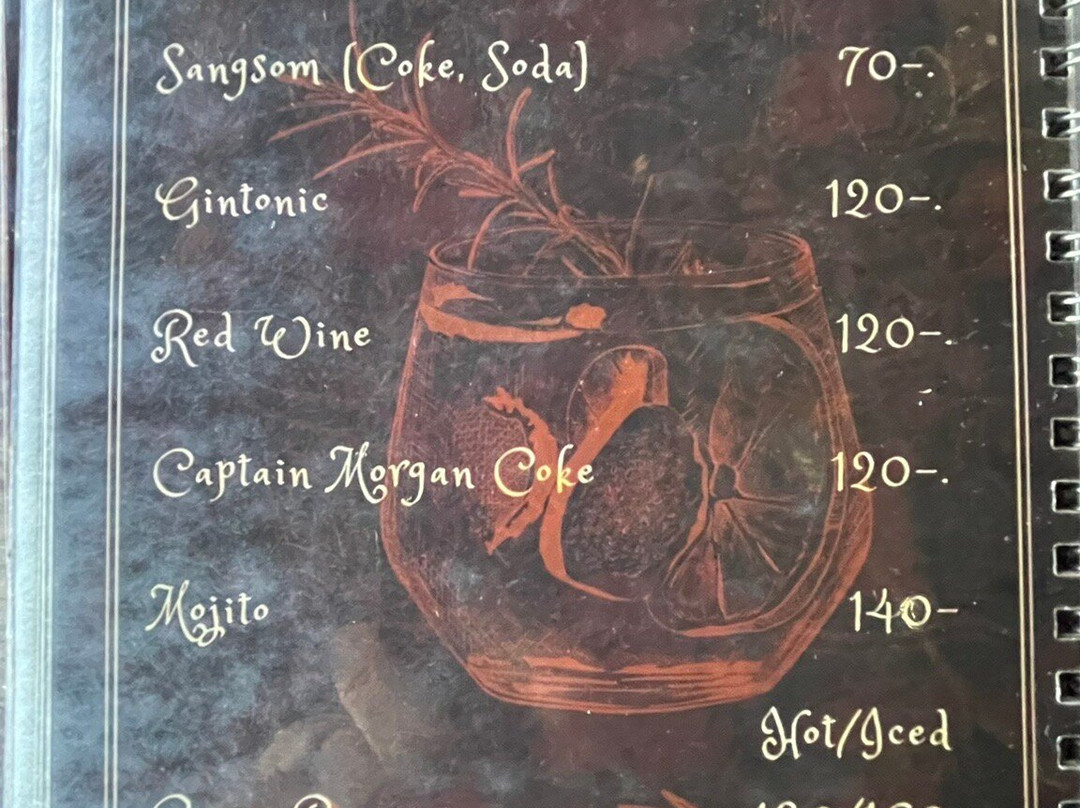 Sangsom (Coke, Soda) 70-.
Gintonic 120-.
Red Wine 120-.
Captain Morgan Coke 120-.
Mojito 140-
Hot/Iced